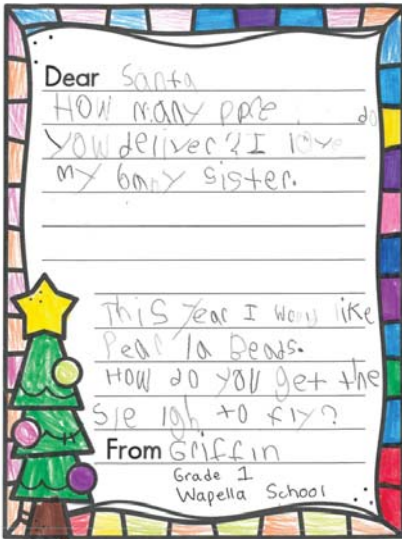 Dear Santa
HOW many ppre do
you deliver? I love
my bmny sister.
This year I woou like
Pear la Beads.
How do you get the
Sleigh to fly?
From Griffin
Grade 1
Wapella School